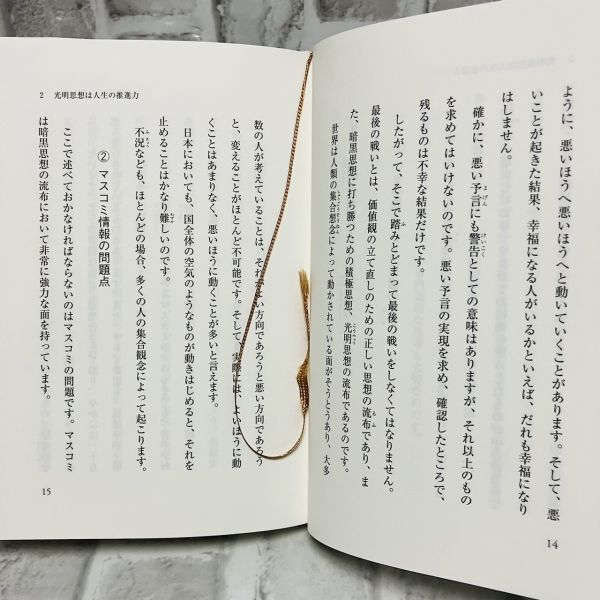 ように、悪いほうへ悪いほうへと動いていくことがあります。そして、悪
いことが起きた結果、幸福になる人がいるかといえば、だれも幸福になり
はしません。
確かに、悪い予言にも警告としての意味はありますが、それ以上のもの
を求めてはいけないのです。悪い予言の実現を求め、確認したところで、
残るものは不幸な結果だけです。
したがって、そこで踏みとどまって最後の戦いをしなくてはなりません。
最後の戦いとは、価値観の立て直しのための正しい思想の流布であり、ま
た、暗黒思想に打ち勝つための積極思想、光明思想の流布であるのです。
世界は人類の集合想念によって動かされている面がそうとうあり、大多
14
2 光明思想は人生の推進力
数の人が考えていることは、それがよい方向であろうと悪い方向であろう
と、変えることがほとんど不可能です。そして、実際には、よいほうに動
くことはあまりなく、悪いほうに動くことが多いと言えます。
日本においても、国全体の空気のようなものが動きはじめると、それを
止めることはかなり難しいのです。
不況なども、ほとんどの場合、多くの人の集合観念によって起こります。
② マスコミ情報の問題点
ここで述べておかなければならないのはマスコミの問題です。マスコミ
は暗黒思想の流布において非常に強力な面を持っています。
15